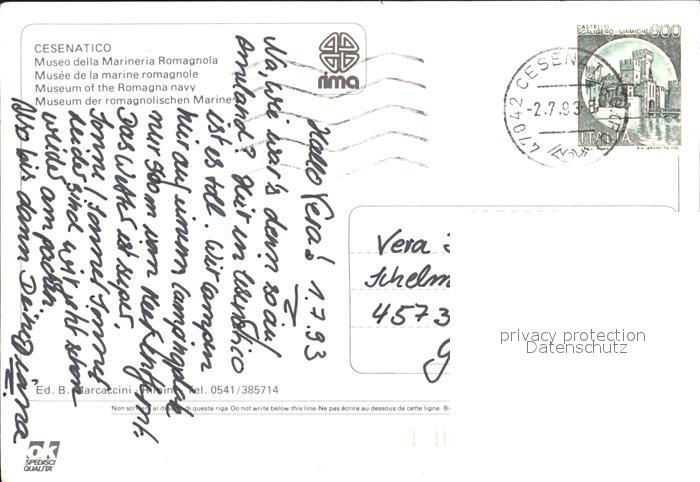 CESENATICO
Museo della Marineria Romagnola
Musée de la marine romagnole
Museum of the Romagna navy
Museum der romagnolischen Marine
rima
CASTELLO
SCALIGERO - SIRMIONE
600
ITALIA
47042 CESENA
-2.7.93-8
Hallo Vera! 1.7.93
Na, wie war's denn so auf
Amrum? Hier in Cesenatico
ist es toll. Wir campen
hier auf einem Campingplatz
nur 50m vom Meer entfernt.
Das Wetter ist super,
Sonne, Sonne, Sonne!
Leider sind wir jetzt schon
wieder am packen
Also bis dann Deine
Vera
Schelm
4573
privacy protection
Datenschutz
Ed. B. Marcaccini - Rimini - Tel. 0541/385714
Non scrivere al di sotto di questa riga-Do not write below this line-Ne pas écrire au dessous de cette ligne- Bi
OK
SPEDISCI
QUALITA'